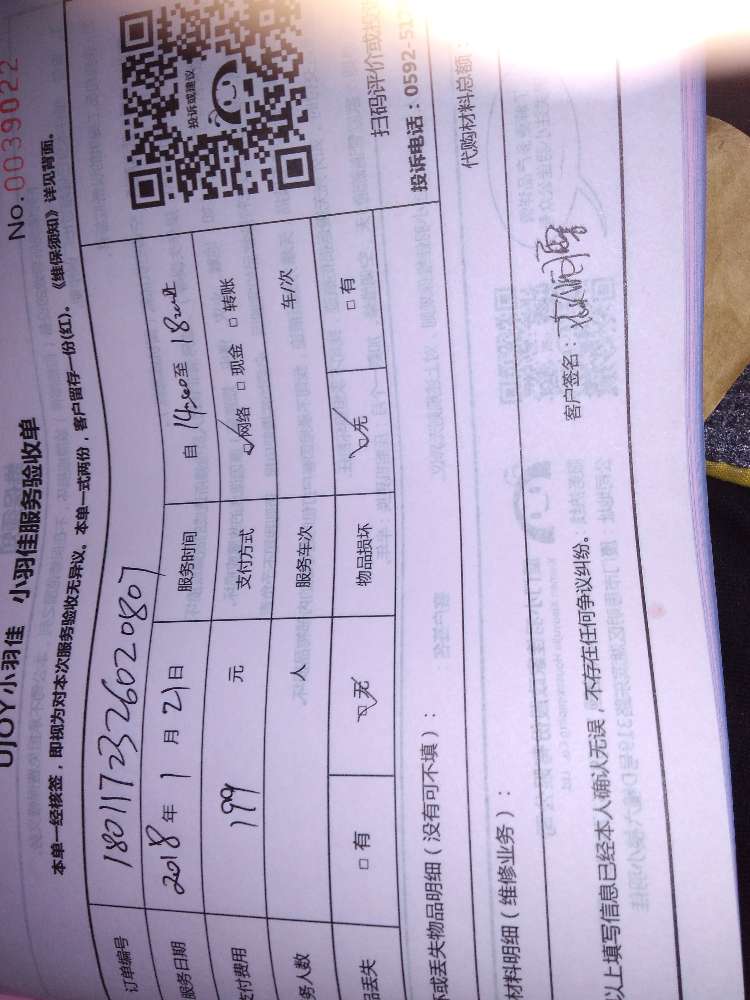 UJOY小羽佳 小羽佳服务验收单
No.0039022
本单一经核签，即视为对本次服务验收无异议。本单一式两份，客户留存一份(红)。《维保须知》详见背面。
订单编号 1801172326020807
服务日期 2018 年 1 月 21 日 服务时间 自 14:00 至 18:00
支付费用 199 元 支付方式 ☑网络 □现金 □转账
务人数 人 服务车次 车/次
品丢失 □有 ☑无 物品损坏 ☑无 □有
投诉或建议
扫码评价或投
投诉电话：0592-517
坏或丢失物品明细（没有可不填）：
材料明细（维修业务）：
代购材料总额：
以上填写信息已经本人确认无误，不存在任何争议纠纷。
客户签名：